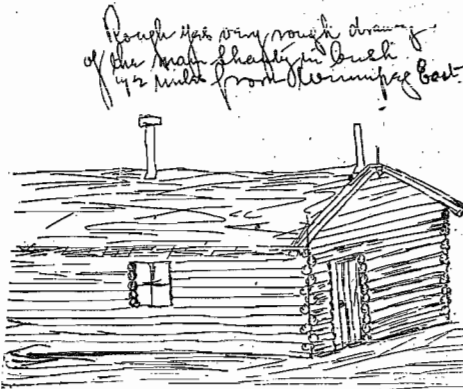 Rough yes very rough drawing
of the main Shanty in bush
miles from Winnipeg East.